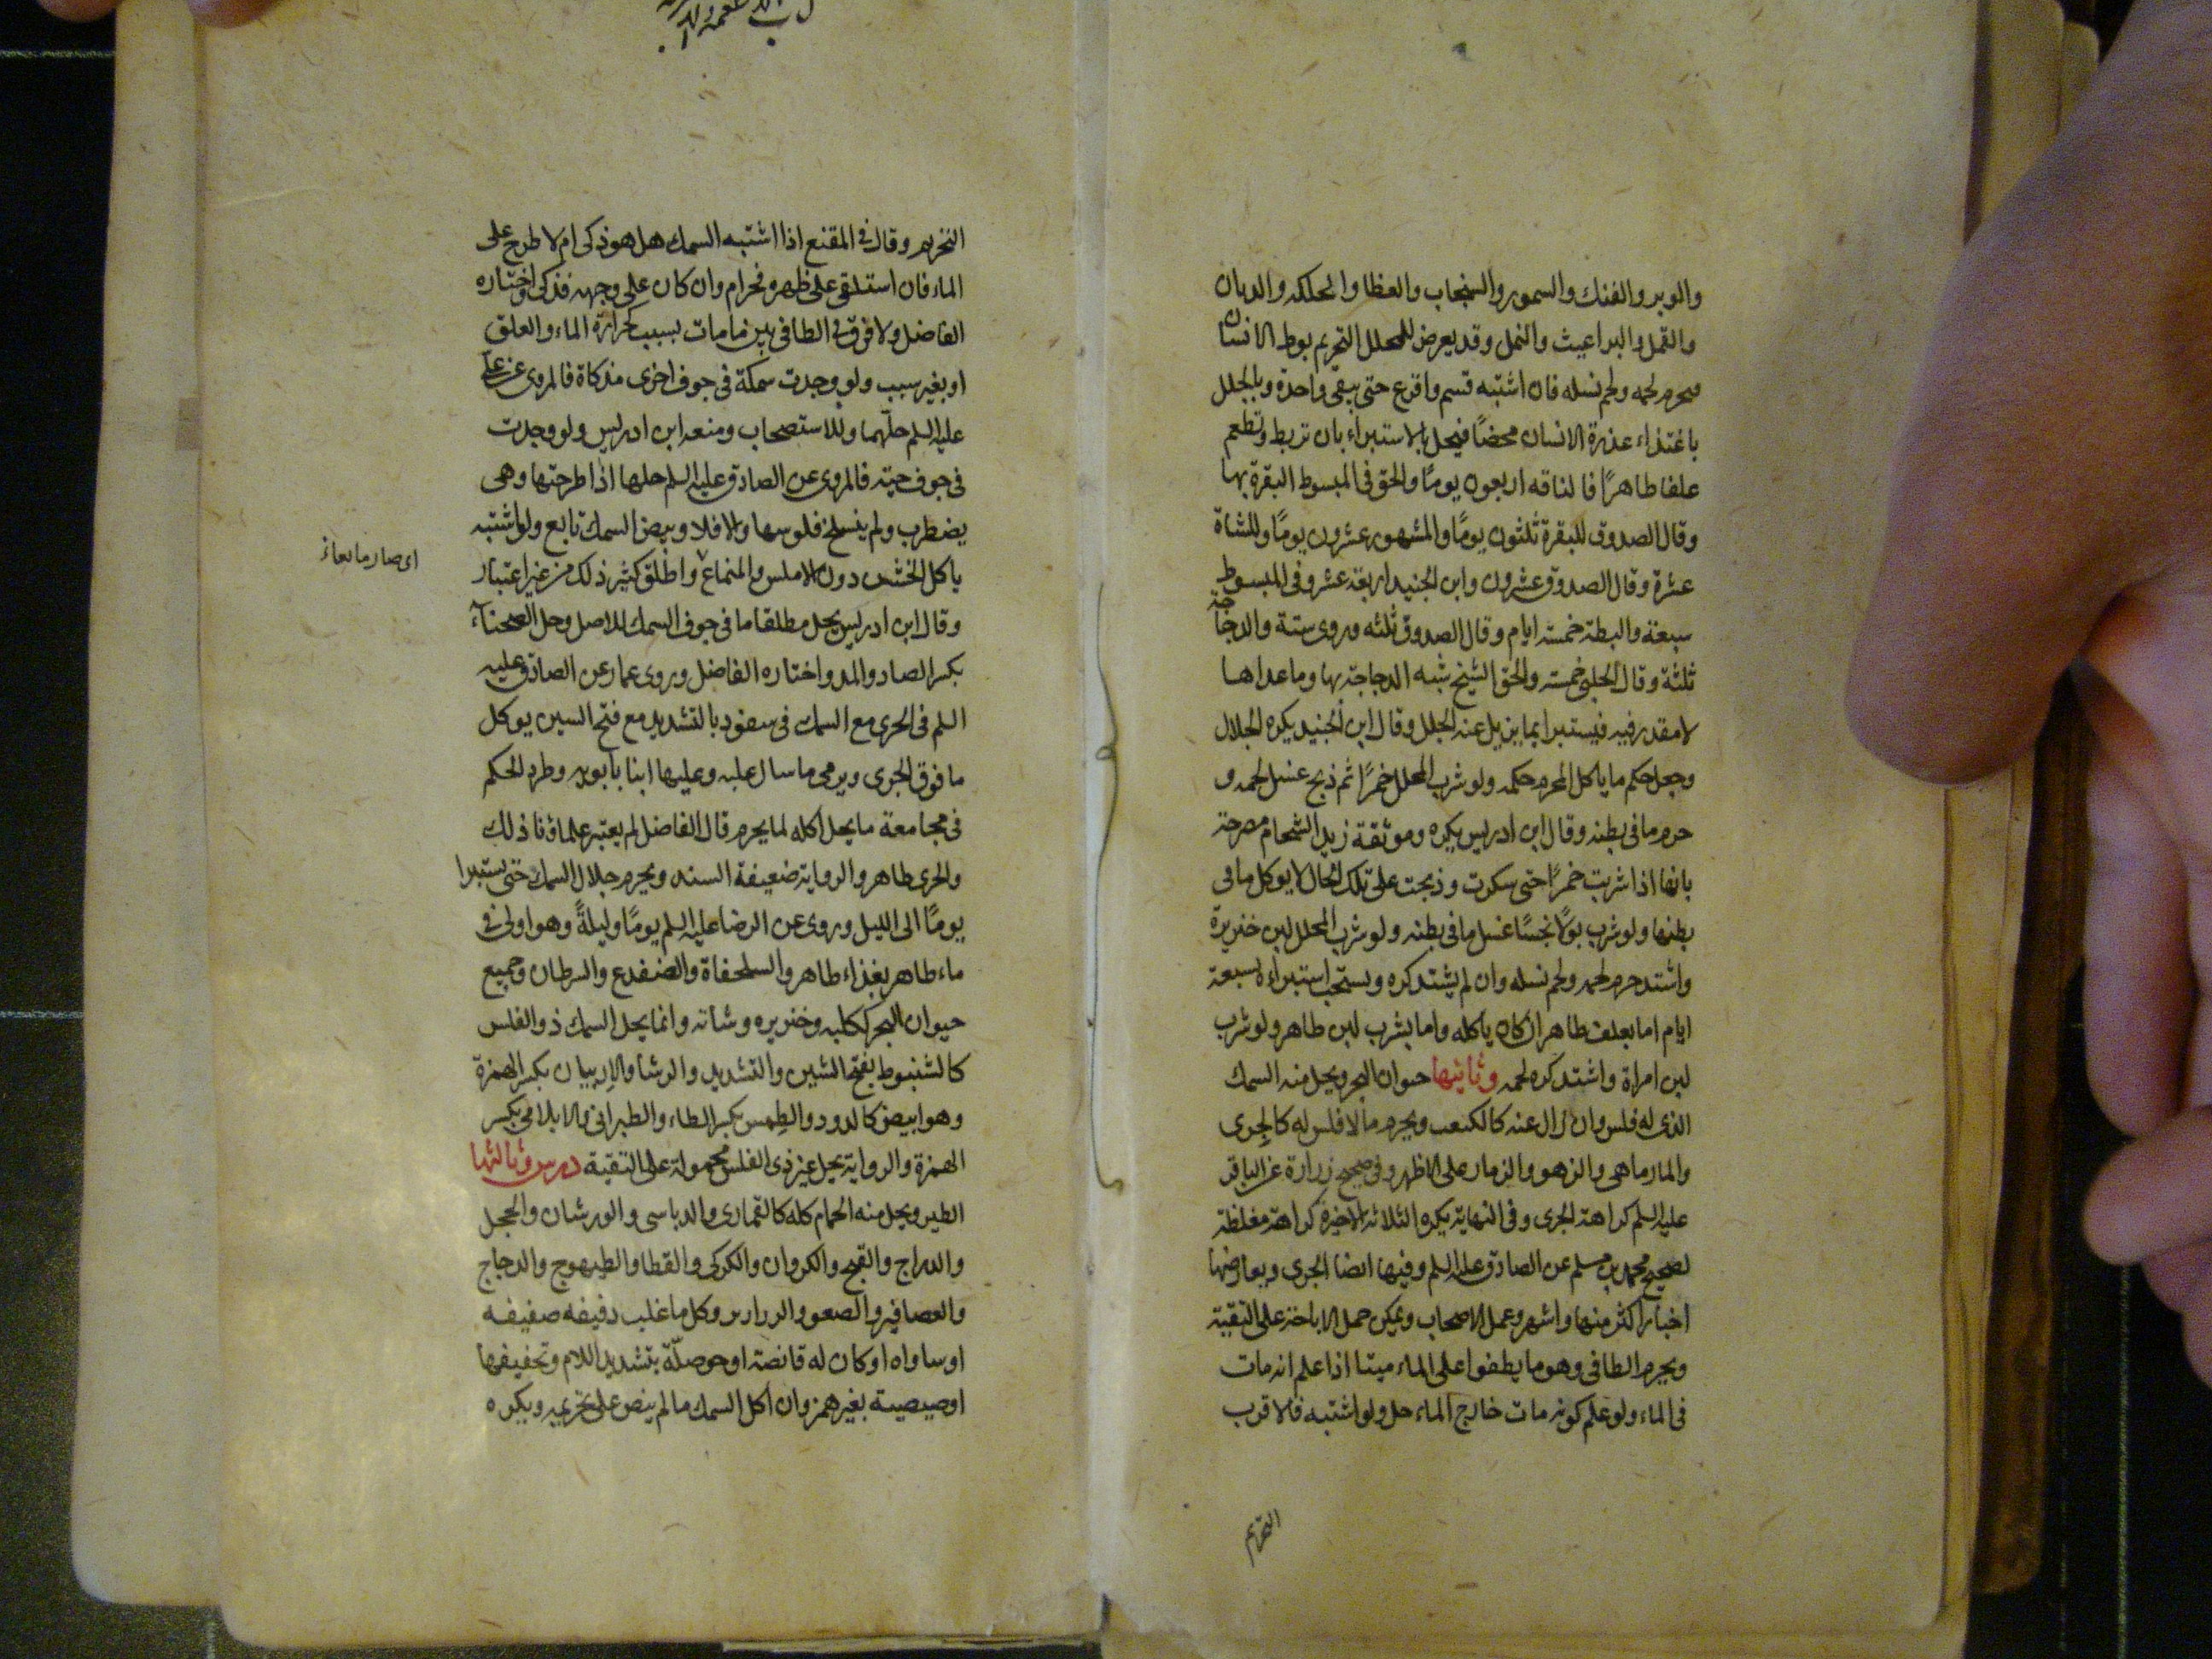 والوبر والفنك والسمور والسنجاب والعظا والحلكه والدبان
والقمل والبراغيث والنمل وقد يعرض للمحلل التحريم بوطء الانسان
فيحرم لحمه ولحم نسله فان اشتبه قسم واقرع حتى يبقى واحدة وبالجلل
باغتذاء عذرة الانسان محضًا فيحل بالاستبراء بان تربط وتطعم
علفا طاهرًا فالناقه اربعون يومًا والحق فى المبسوط البقرة بها
وقال الصدوق للبقرة ثلثون يومًا والمشهور عشرون يومًا وللشاة
عشرة وقال الصدوق عشرون وابن الجنيد اربعة عشر وفى المبسوط
سبعة والبطة خمسة ايام وقال الصدوق ثلثه وروى ستة والدجاجة
ثلثة وقال الحلبى خمسة والحق الشيخ شبه الدجاجة بها وما عداها
لا مقدر فيه فيستبرا بما يزيل عنه الجلل وقال ابن الجنيد يكره الجلال
وجعل حكم ما ياكل المحرم حكمه ولو شرب المحلل خمرًا ثم ذبح غسل لحمه و
حرم ما فى بطنه وقال ابن ادريس يكره وموثقة زيد الشحام مصرحة
بانها اذا شربت خمرًا حتى سكرت وذبحت على تلك الحال لا يوكل ما فى
بطنها ولو شرب بولًا نجسًا غسل ما فى بطنه ولو شرب المحلل لبن خنزيرة
واشتد حرم لحمه ولحم نسله وان لم يشتد كره ويستحب استبراءه بسبعة
ايام اما بعلف طاهر ان كان ياكله واما بشرب لبن طاهر ولو شرب
لبن امراة واشتد كره لحمه وثانيها حيوان البحر ويحل منه السمك
الذى له فلس وان زال عنه كالكنعت ويحرم ما لا فلس له كالجرى
والمارماهى والزهو والزمار على الاظهر وفى صحيح زرارة عن الباقر
عليه السلم كراهة الجرى وفى النهاية يكره الثلاثه الاخيرة كراهة مغلظة
لصحيح محمد بن مسلم عن الصادق عليه السلم وفيها ايضا الجرى ويعارضها
اخبار اكثر منها واشهر وعمل الاصحاب ويمكن حمل الاباحة على التقية
ويحرم الطافى وهو ما يطفوا على الماء ميتا اذا علم انه مات
فى الماء ولو علم كونه مات خارج الماء حل ولو اشتبه فالاقرب
التحريم
التحريم وقال فى المقنع اذا اشتبه السمك هل هو ذكى ام لا طرح على
الماء فان استلقى على ظهره فحرام وان كان على وجهه فذكى واختاره
الفاضل ولا فرق فى الطافى بين ما مات بسبب كحرارة الماء والعلق
او بغير سبب ولو وجدت سمكة فى جوف اخرى مذكاة فالمروى عن على
عليه السلم حلّهما وللاستصحاب ومنعه ابن ادريس ولو وجدت
فى جوف حية فالمروى عن الصادق عليه السلم حلها اذا طرحتها وهى
يضطرب ولم ينسلخ فلوسها والا فلا وبيض السمك تابع ولو اشتبه
ياكل الخشن دون الاملس والمنماع واطلق كثير ذلك من غير اعتبار
اى صار مايعا
وقال ابن ادريس يحل مطلقا ما فى جوف السمك للاصل وحل الصحناء
بكسر الصاد والمد واختاره الفاضل وروى عمار عن الصادق عليه
السلم فى الجرى مع السمك فى سفود بالتشديد مع فتح السين يوكل
ما فوق الجرى ويرمى ما سال عليه وعليها ابنا بابويه وطرد الحكم
فى مجامعة ما يحل اكله لما يحرم قال الفاضل لم يعتبر علماؤنا ذلك
والجرى طاهر والرواية ضعيفة السند ويحرم جلال السمك حتى يستبرا
يومًا الى الليل وروى عن الرضا عليه السلم يومًا وليلةً وهو اولى فى
ماء طاهر بغذاء طاهر والسلحفاة والضفدع والسرطان وجميع
حيوان البحر ككلبه وخنزيره وشاته وانما يحل السمك ذو الفلس
كالشنبوط بفتح الشين والتشديد والربيثا والاربيان بكسر الهمزة
وهو ابيض كالدود والطمس بكسر الطاء والطبرانى والابلامى بكسر
الهمزة والرواية بحل غير ذى الفلس محمولة على التقية درس وثالثها
الطير ويحل منه الحمام كله كالقمارى والدباسى والورشان والحجل
والدراج والقبج والكروان والكركى والقطا والطيهوج والدجاج
والعصافير والصعو والزرازير وكل ما غلب دفيفه صفيفه
او ساواه او كان له قانصة او حوصلّة بتشديد اللام وتخفيفها
او صيصية بغير همز وان اكل السمك ما لم ينص على تحريمه ويكره